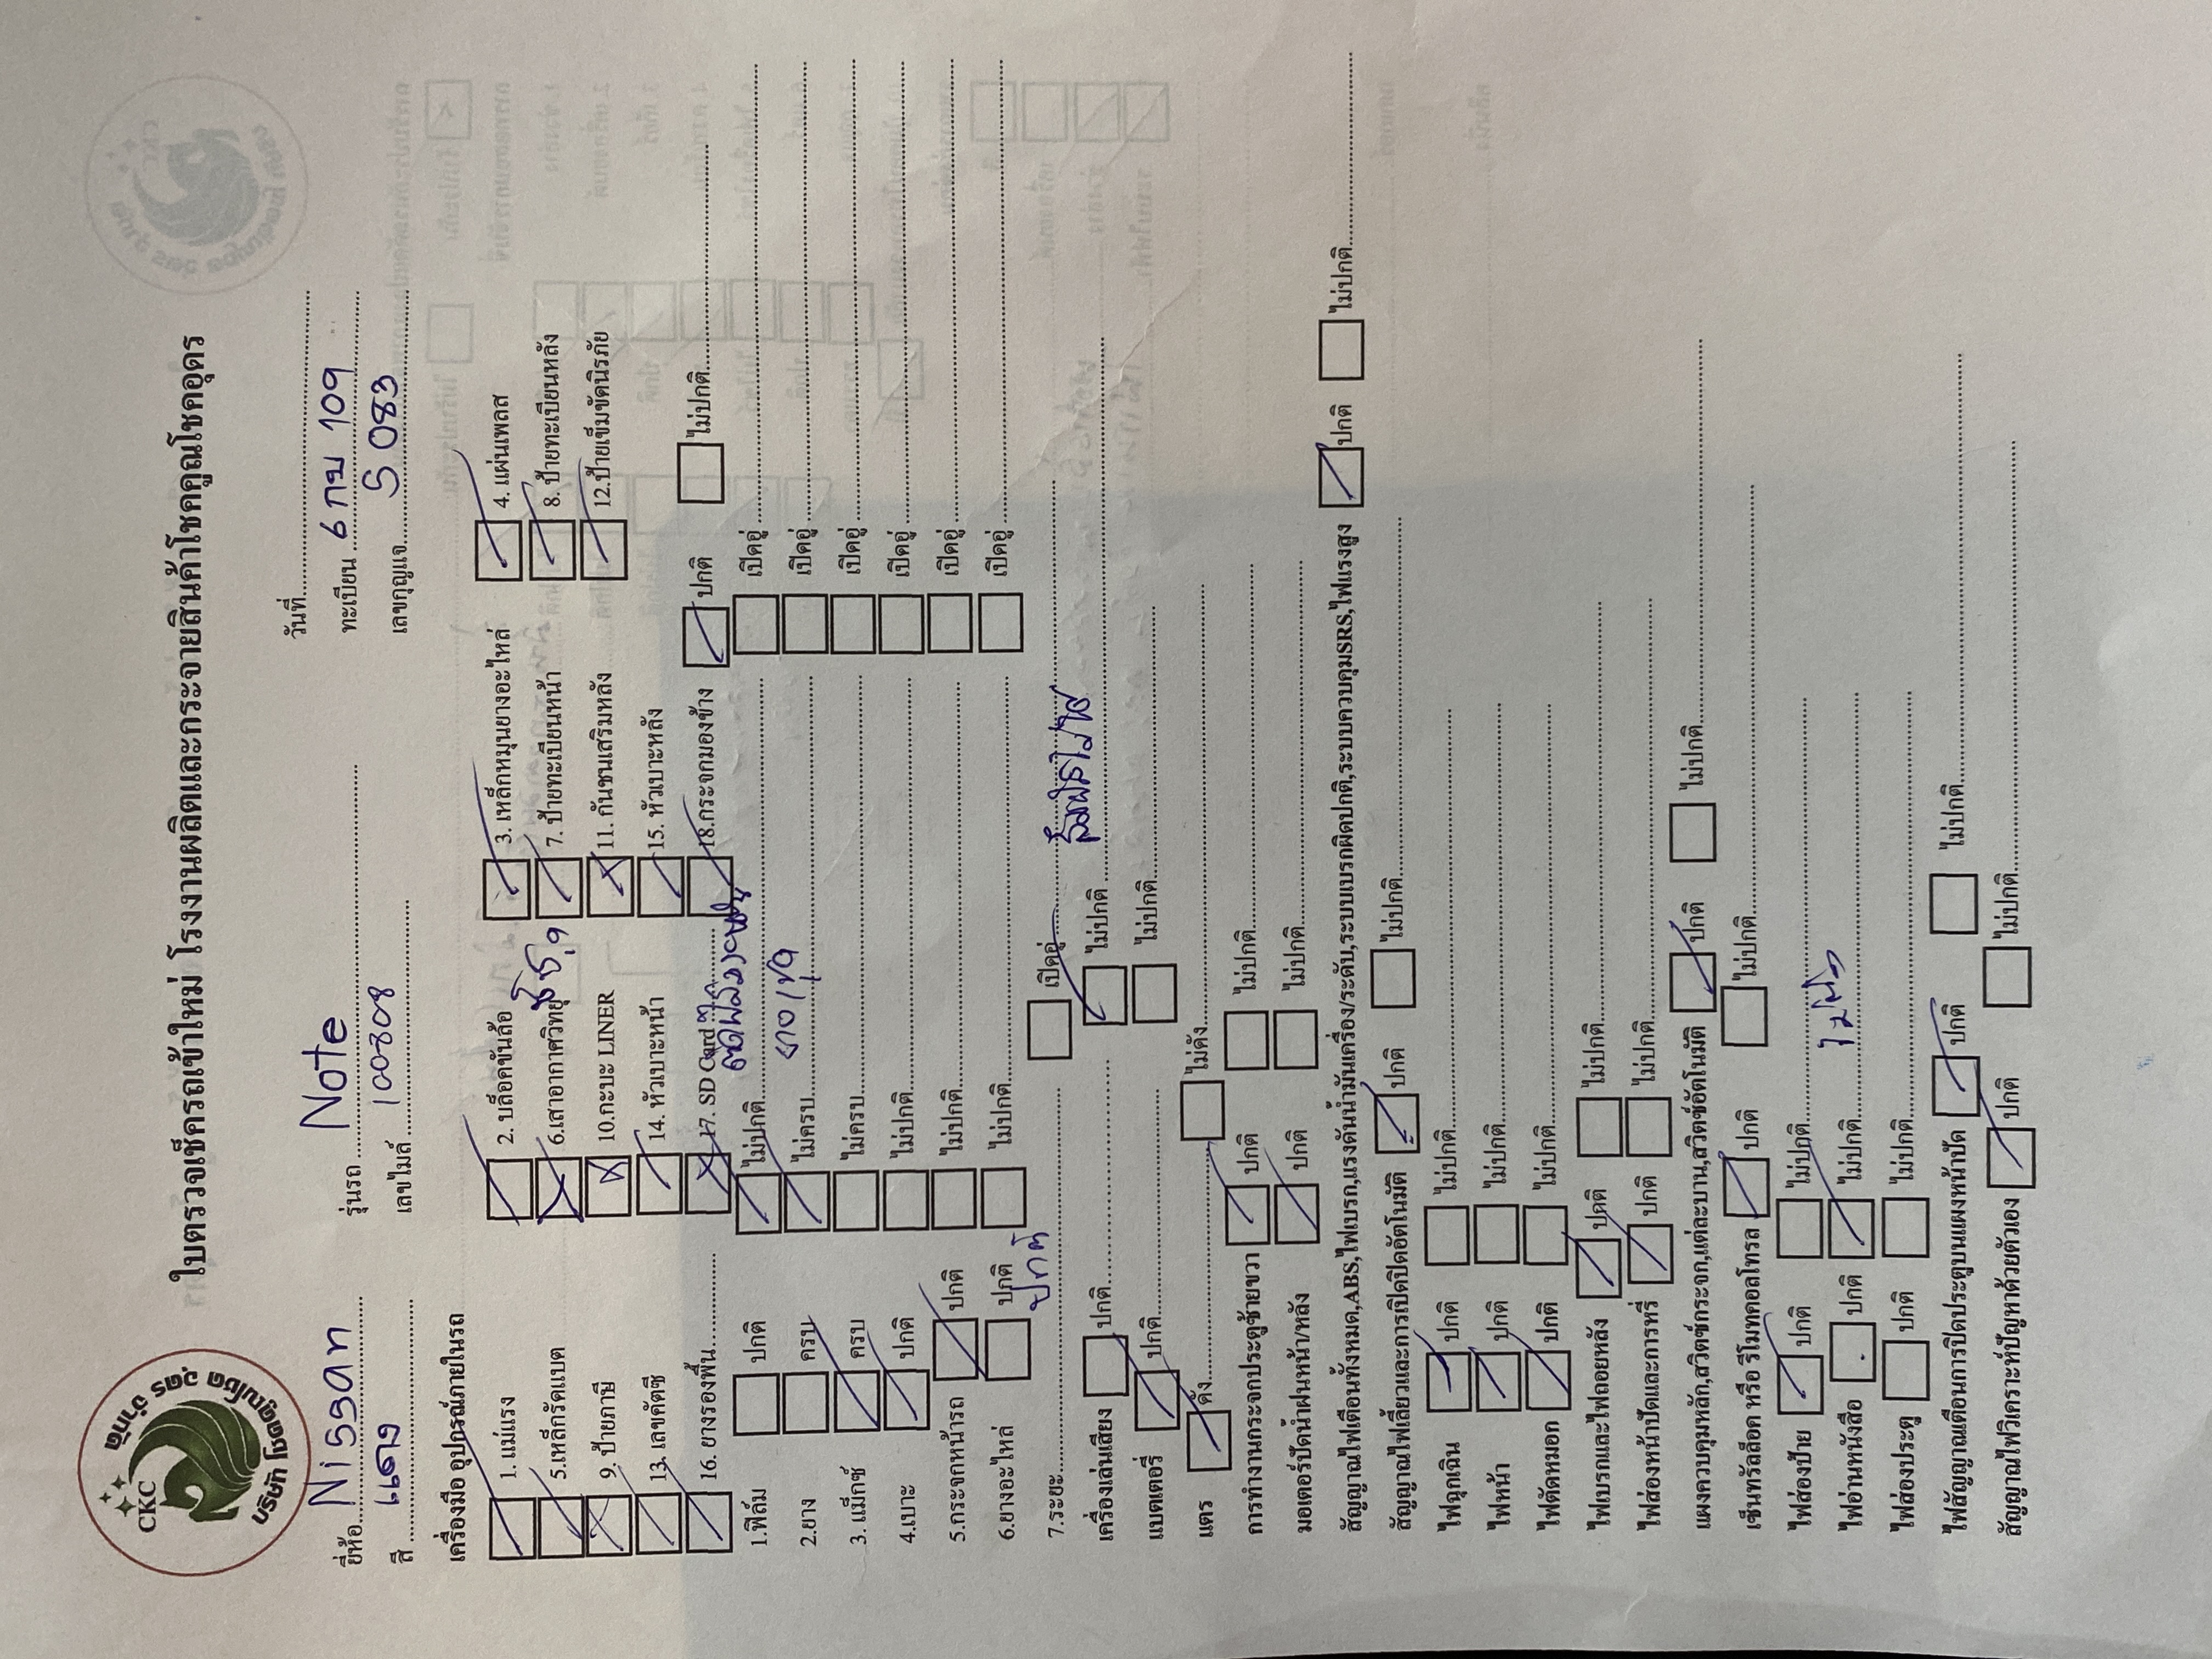 CKC
บริษัท โชคคูณโชค อุดร จำกัด
ใบตรวจเช็ครถเข้าใหม่ โรงงานผลิตและกระจายสินค้าโชคคูณโชคอุดร
วันที่
ยี่ห้อ Nissan รุ่นรถ Note ทะเบียน 6 กบ 109
สี แดง เลขไมล์ 100808 เลขกุญแจ S 083
เครื่องมือ อุปกรณ์ภายในรถ
1. แม่แรง 2. บล็อคขันล้อ 3. เหล็กหมุนยางอะไหล่ 4. แผ่นเพลส
5.เหล็กรัดแบต 6.เสาอากาศวิทยุ 7. ป้ายทะเบียนหน้า 8. ป้ายทะเบียนหลัง
9. ป้ายภาษี 10.กะบะ LINER 11. กันชนเสริมหลัง 12.ป้ายเข็มขัดนิรภัย
13. เลขคัตซี 14. หัวเบาะหน้า 15. หัวเบาะหลัง
16. ยางรองพื้น 17. SD Card 18.กระจกมองข้าง ปกติ ไม่ปกติ
1.ฟิล์ม ปกติ ไม่ปกติ เปิดอู่
2.ยาง ครบ ไม่ครบ เปิดอู่
3. แม็กซ์ ครบ ไม่ครบ เปิดอู่
4.เบาะ ปกติ ไม่ปกติ เปิดอู่
5.กระจกหน้ารถ ปกติ ไม่ปกติ เปิดอู่
6.ยางอะไหล่ ปกติ ไม่ปกติ เปิดอู่
7.ระยะ ปกติ เปิดอู่
เครื่องเล่นเสียง ปกติ ไม่ปกติ
แบตเตอรี่ ปกติ ไม่ปกติ
แตร ดัง ไม่ดัง
การทำงานกระจกประตูซ้ายขวา ปกติ ไม่ปกติ
มอเตอร์ปัดน้ำฝนหน้า/หลัง ปกติ ไม่ปกติ
สัญญาณไฟเตือนทั้งหมด,ABS,ไฟเบรก,แรงดันน้ำมันเครื่อง/ระดับ,ระบบเบรกผิดปกติ,ระบบควบคุมSRS,ไฟแรงสูง ปกติ ไม่ปกติ
สัญญาณไฟเลี้ยวและการเปิดปิดอัตโนมัติ ปกติ ไม่ปกติ
ไฟฉุกเฉิน ปกติ ไม่ปกติ
ไฟหน้า ปกติ ไม่ปกติ
ไฟตัดหมอก ปกติ ไม่ปกติ
ไฟเบรกและไฟถอยหลัง ปกติ ไม่ปกติ
ไฟส่องหน้าปัดและการหรี่ ปกติ ไม่ปกติ
แผงควบคุมหลัก,สวิตซ์กระจก,แต่ละบาน,สวิตซ์อัตโนมัติ ปกติ ไม่ปกติ
เซ็นทรัลล็อค หรือ รีโมทคอลโทรล ปกติ ไม่ปกติ
ไฟส่องป้าย ปกติ ไม่ปกติ
ไฟอ่านหนังสือ ปกติ ไม่ปกติ ไม่มี
ไฟส่องประตู ปกติ ไม่ปกติ
ไฟสัญญาณเตือนการปิดประตูบนแผงหน้าปัด ปกติ ไม่ปกติ
สัญญาณไฟวิเคราะห์ปัญหาด้วยตัวเอง ปกติ ไม่ปกติ